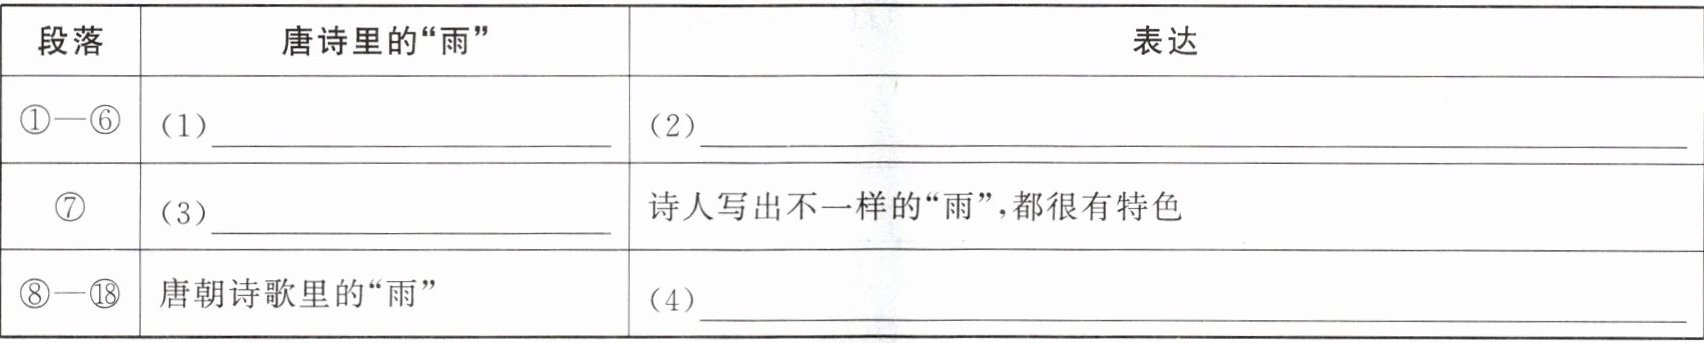 段落 唐诗里的“雨” 表达
①—⑥ (1) (2)
⑦ (3) 诗人写出不一样的“雨”,都很有特色
⑧—⑱ 唐朝诗歌里的“雨” (4)